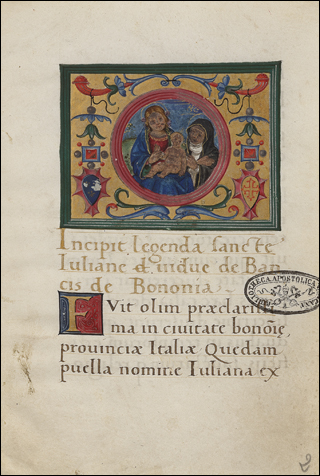 Incipit legenda sancte
Iuliane & uidue de Ban
cis de Bononia
FVit olim præclarissi
ma in ciuitate bonoie,
prouinciæ Italiæ Quedam
puella nomine Iuliana ex
APOSTOLICA